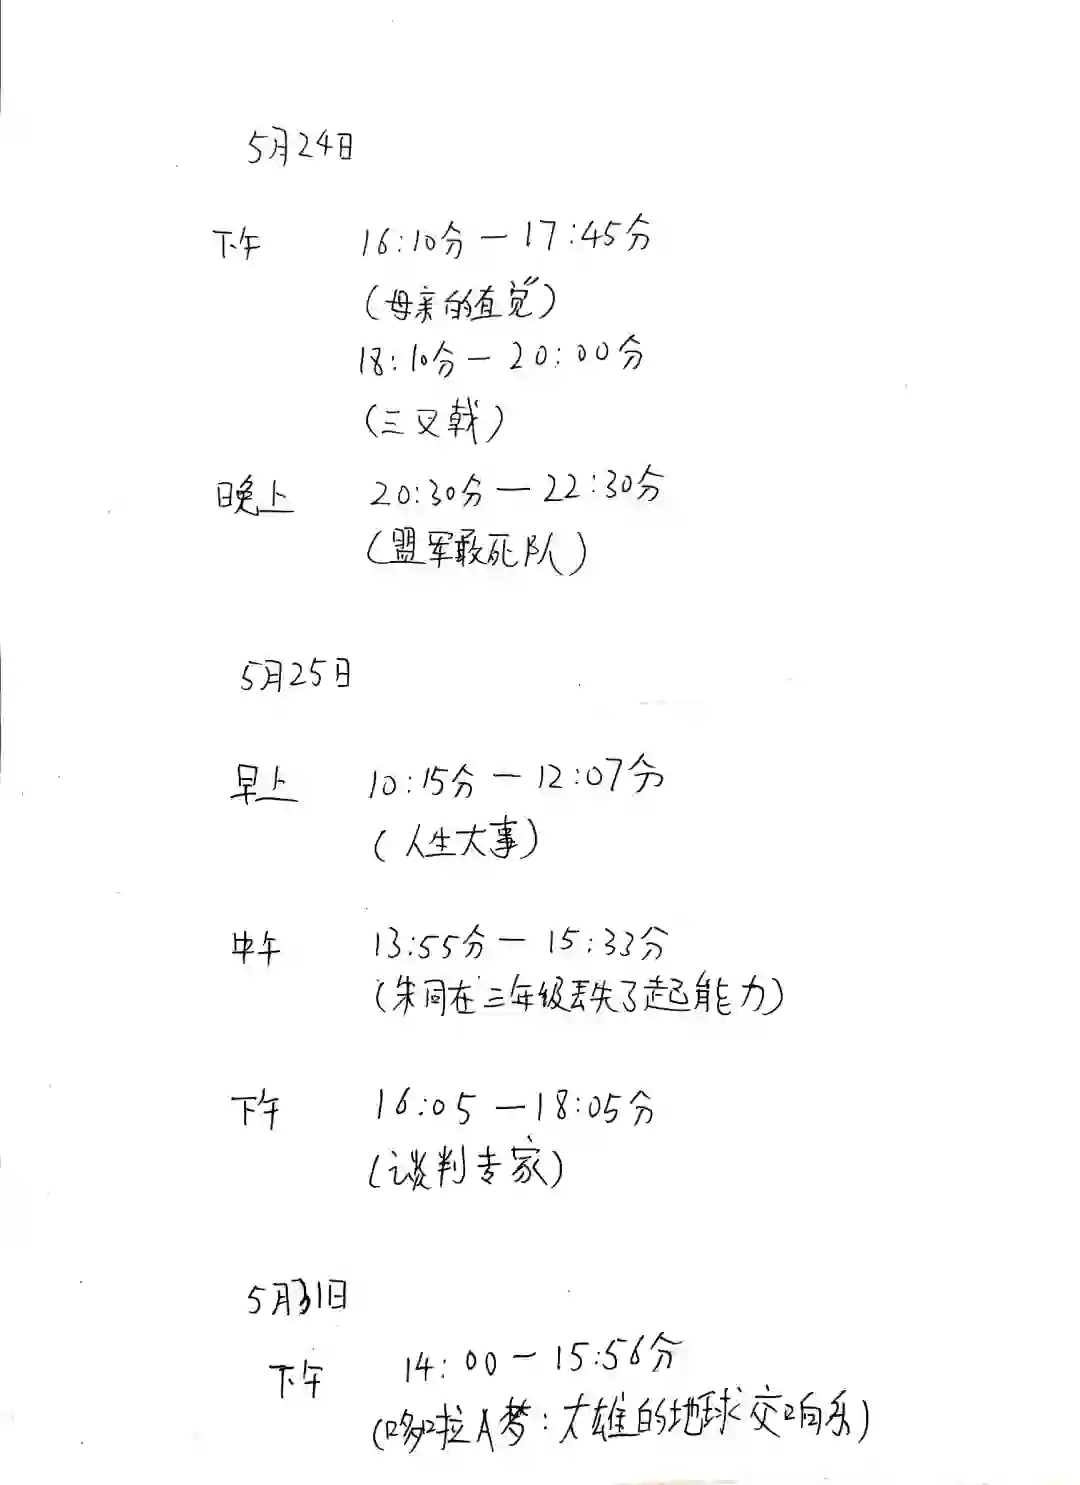 5月24日
下午 16:10分—17:45分
(母亲的直觉)
18:10分—20:00分
(三叉戟)
晚上 20:30分—22:30分
(盟军敢死队)
5月25日
早上 10:15分—12:07分
(人生大事)
中午 13:55分—15:33分
(朱同在三年级丢失了起能力)
下午 16:05—18:05分
(谈判专家)
5月31日
下午 14:00—15:56分
(哆啦A梦:大雄的地球交响乐)